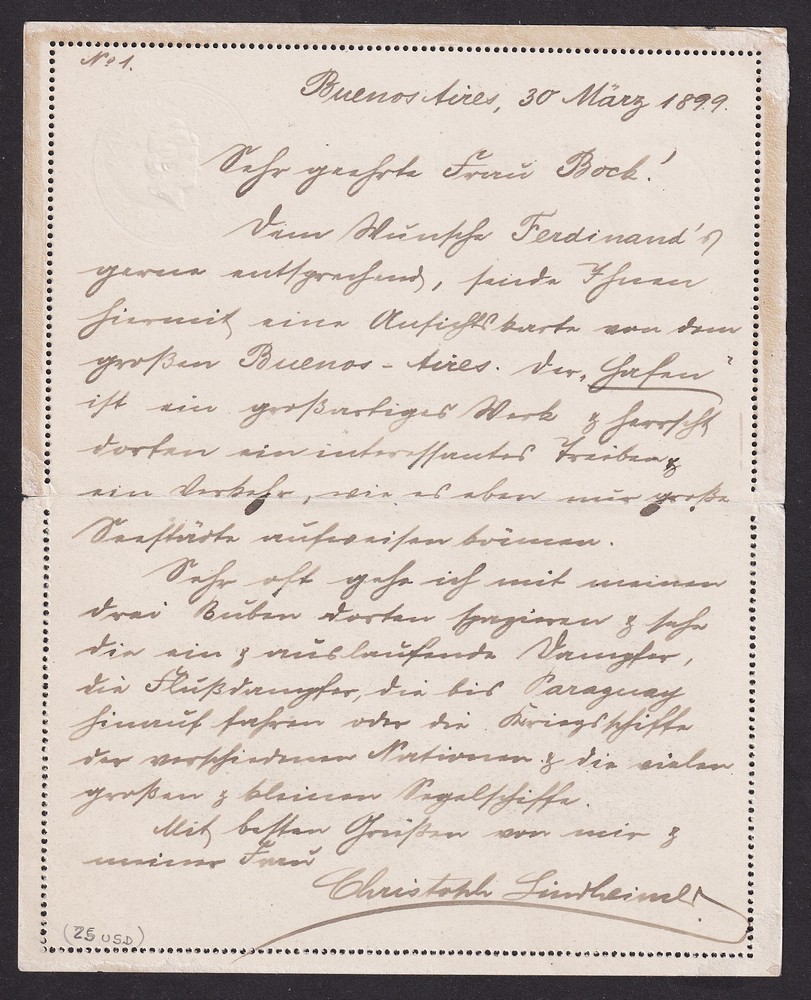 No 1.
Buenos Aires, 30 März 1899.
Sehr geehrte Frau Bock!
Dem Wunsche Ferdinand's
gerne entsprechend, sende Ihnen
hiermit eine Ansichtskarte von dem
großen Buenos-Aires. Der „Hafen"
ist ein großartiges Werk & herrscht
dorten ein interessantes Treiben &
ein Verkehr, wie es eben nur große
Seestädte aufweisen können.
Sehr oft gehe ich mit meinen
drei Buben dorten spazieren & sehe
die ein & auslaufende Dampfer,
die Flußdampfer, die bis Paraguay
hinauf fahren oder die Kriegsschiffe
der verschiedenen Nationen & die vielen
großen & kleinen Segelschiffe.
Mit besten Grüßen von mir &
meiner Frau
Christoph Lindheimer
(25 USD)